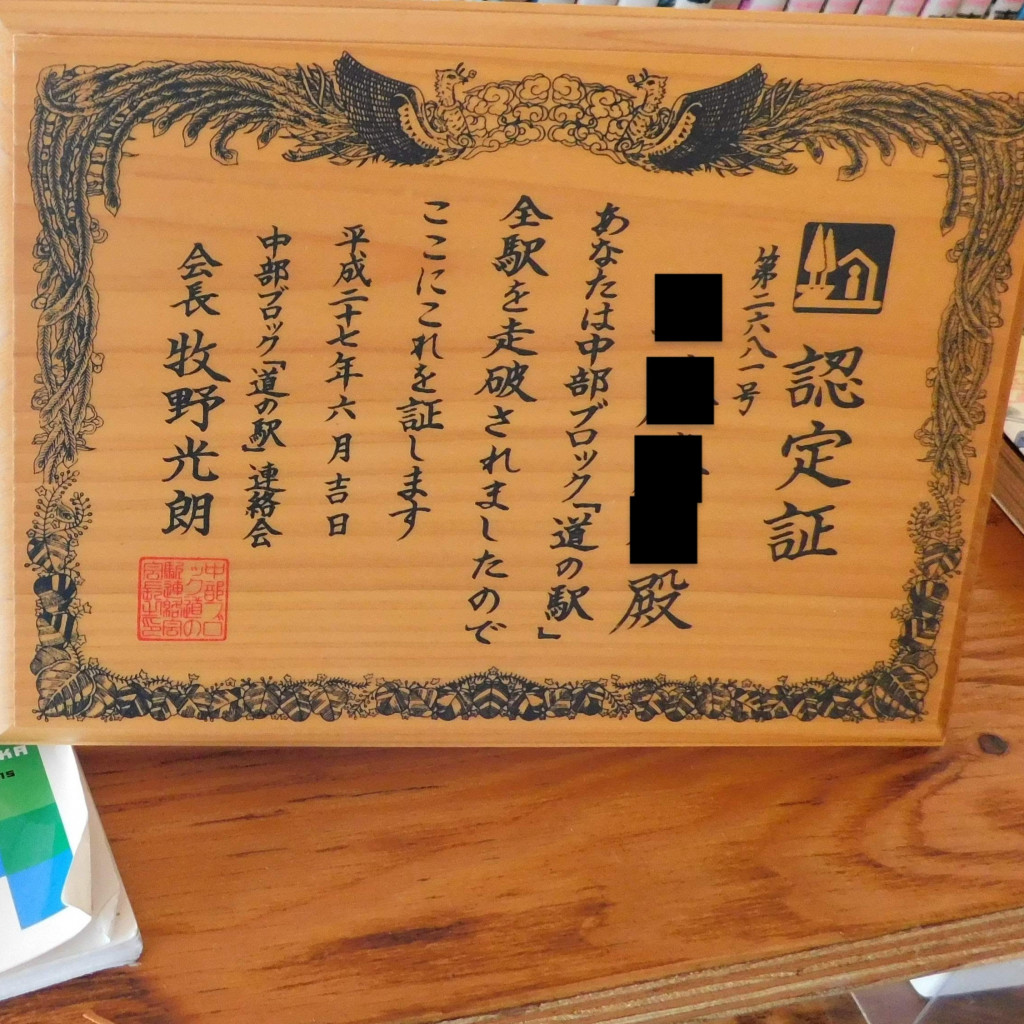 認定証
第二六八一号
殿
あなたは中部ブロック「道の駅」
全駅を走破されましたので
ここにこれを証します
平成二十七年六月吉日
中部ブロック「道の駅」連絡会
会長 牧野光朗
中部ブロ
ック道の
駅連絡会
会長之印
KA